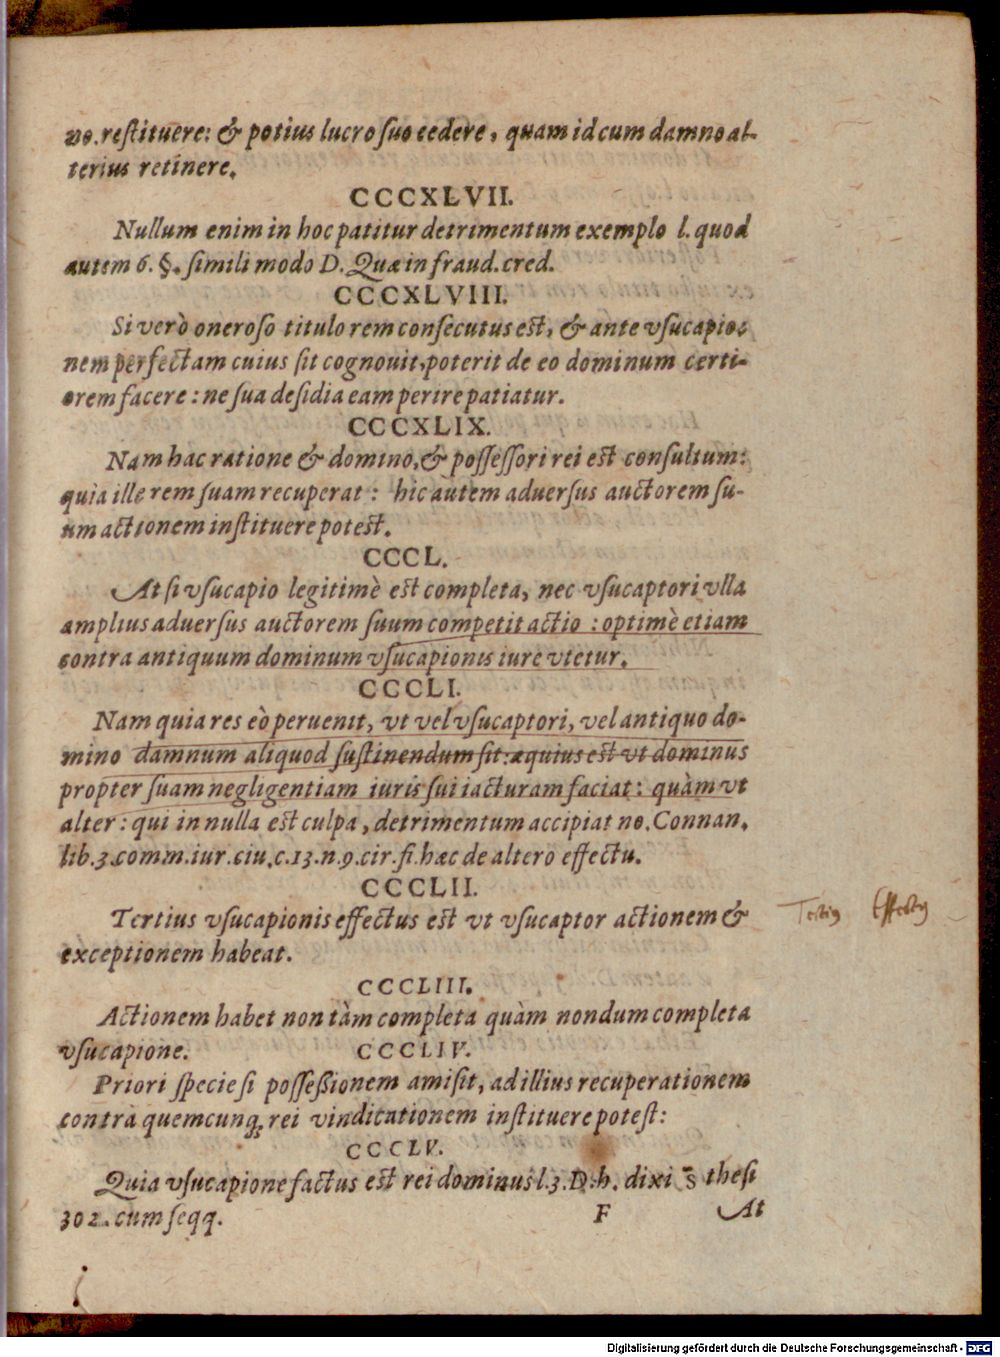 uo. restituere: & potius lucro suo cedere, quam id cum damno al-
terius retinere.
CCCXLVII.
Nullum enim in hoc patitur detrimentum exemplo l. quod
autem 6. §. simili modo D. Quæ in fraud. cred.
CCCXLVIII.
Si verò oneroso titulo rem consecutus est, & ante vsucapio-
nem perfectam cuius sit cognouit, poterit de eo dominum certi-
orem facere: ne sua desidia eam perire patiatur.
CCCXLIX.
Nam hac ratione & domino, & possessori rei est consultum:
quia ille rem suam recuperat: hic autem aduersus auctorem su-
um actionem instituere potest.
CCCL.
At si vsucapio legitimè est completa, nec vsucaptori vlla
amplius aduersus auctorem suum competit actio: optimè etiam
contra antiquum dominum vsucapionis iure vtetur.
CCCLI.
Nam quia res eò peruenit, vt vel vsucaptori, vel antiquo do-
mino damnum aliquod sustinendum sit: æquius est vt dominus
propter suam negligentiam iuris sui iacturam faciat: quàm vt
alter: qui in nulla est culpa, detrimentum accipiat no. Connan.
lib. 3. comm. iur. ciu. c. 13. n. 9. cir. fi. hæc de altero effectu.
CCCLII.
Tertius vsucapionis effectus est vt vsucaptor actionem &
exceptionem habeat.
Tertius Effectus
CCCLIII.
Actionem habet non tàm completa quàm nondum completa
vsucapione.
CCCLIV.
Priori specie si possessionem amisit, ad illius recuperationem
contra quemcunq; rei vindicationem instituere potest:
CCCLV.
Quia vsucapione factus est rei dominus l. 3. D. h. dixi s thesi
302. cum seqq.
F At
Digitalisierung gefördert durch die Deutsche Forschungsgemeinschaft - DFG